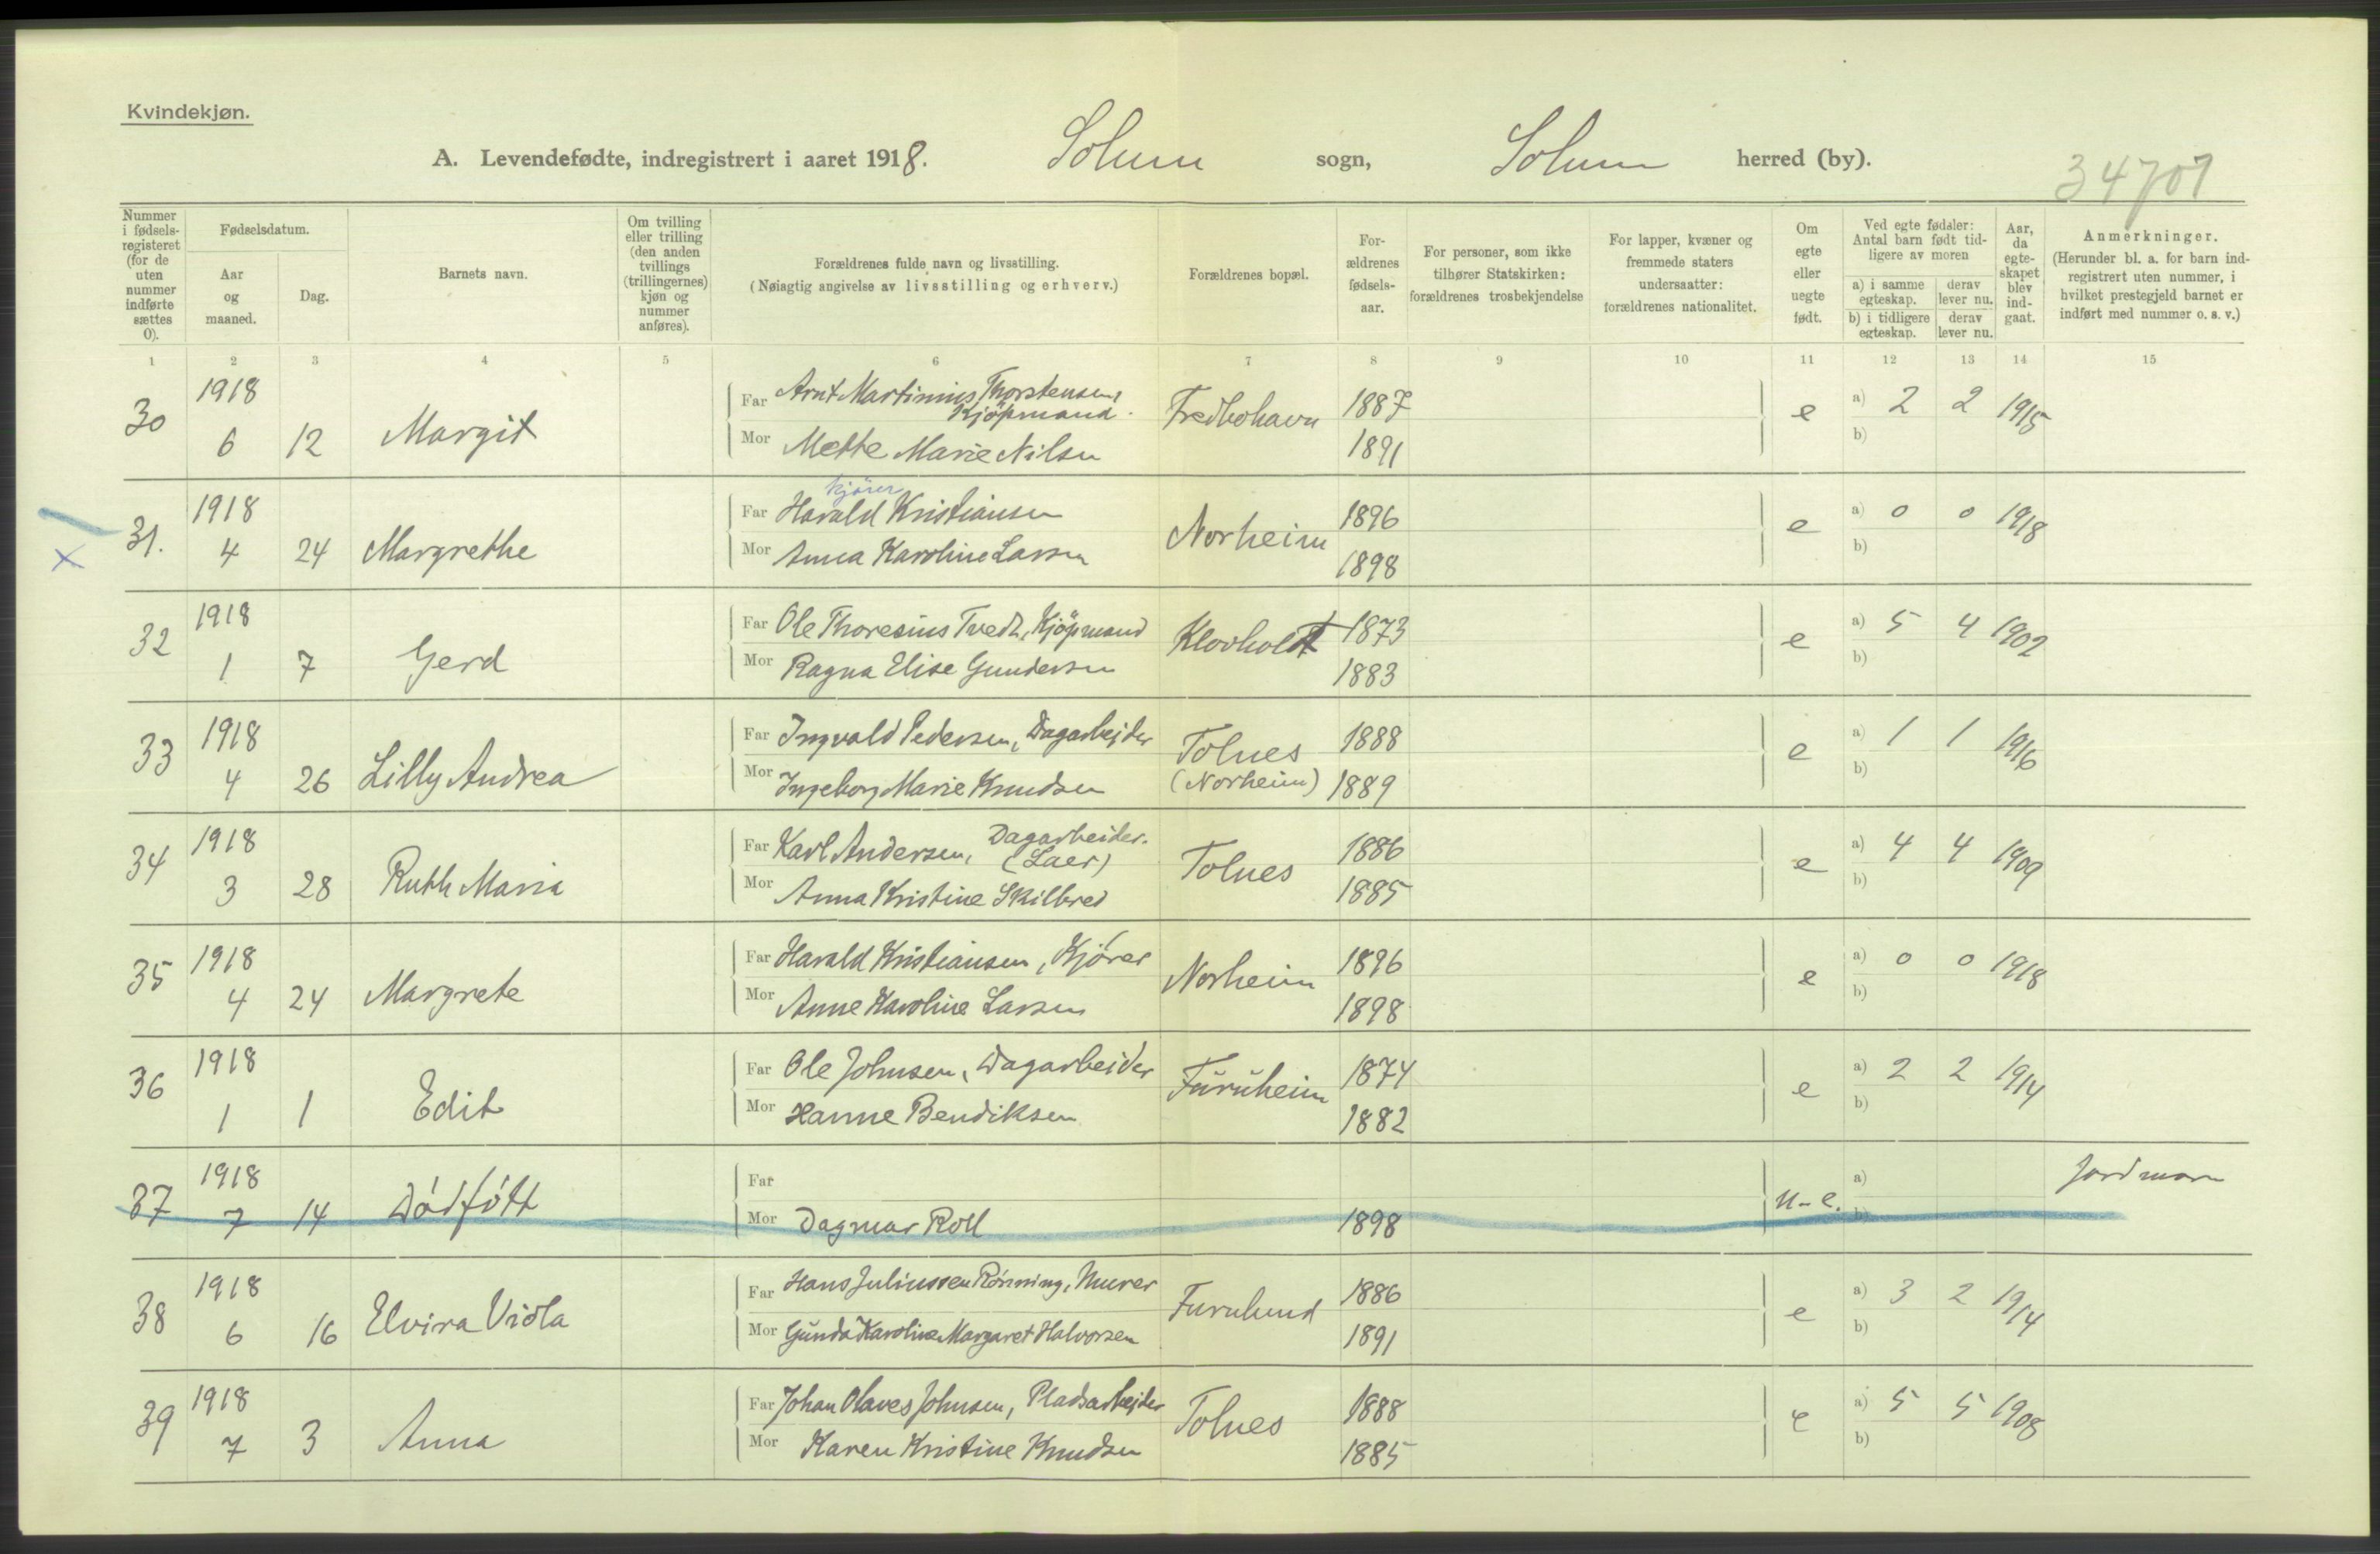 Kvindekjøn.
A. Levendefødte, indregistrert i aaret 1918. Solum sogn, Solum herred (by).
34707
Nummer i fødsels-registeret (for de uten nummer indførte sættes 0).
Fødselsdatum.
Aar og maaned.
Dag.
Barnets navn.
Om tvilling eller trilling (den anden tvillings (trillingernes) kjøn og nummer anføres).
Forældrenes fulde navn og livsstilling.
(Nøiagtig angivelse av livsstilling og erhverv.)
Forældrenes bopæl.
For-ældrenes fødsels-aar.
For personer, som ikke tilhører Statskirken: forældrenes trosbekjendelse
For lapper, kvæner og fremmede staters undersaatter: forældrenes nationalitet.
Om egte eller uegte født.
Ved egte fødsler: Antal barn født tid-ligere av moren
a) i samme egteskap.
derav lever nu.
b) i tidligere egteskap.
derav lever nu.
Aar, da egte-skapet blev ind-gaat.
Anmerkninger.
(Herunder bl. a. for barn ind-registrert uten nummer, i hvilket prestegjeld barnet er indført med nummer o. s. v.)
1 2 3 4 5 6 7 8 9 10 11 12 13 14 15
30 1918 Far Arnt Martinius Thorstensen Fredhohavn 1887 e a) 2 2 1915
Kjöpmand.
6 12 Margit Mor Mette Marie Nilsen 1891 b)
kjörer
31. 1918 Far Harald Kristiansen Norheim 1896 e a) 0 0 1918
x 4 24 Margrethe Mor Anna Karoline Larsen 1898 b)
32 1918 Far Ole Thoresius Tvedt, Kjöpmand Klovholdt 1873 e a) 5 4 1902
1 7 Gerd Mor Ragna Elise Gundersen 1883 b)
33 1918 Far Ingvald Pedersen, Dagarbejder Tolnes 1888 e a) 1 1 1916
4 26 Lilly Andrea Mor Ingeborg Marie Knudsen (Norheim) 1889 b)
34 1918 Far Karl Andersen, Dagarbeider. Tolnes 1886 e a) 4 4 1909
(Laer)
3 28 Ruth Maria Mor Anna Kristine Skilbred 1885 b)
35 1918 Far Harald Kristiansen, Kjórer Norheim 1896 e a) 0 0 1918
4 24 Margrete Mor Anne Karoline Larsen 1898 b)
36 1918 Far Ole Johnsen, Dagarbeider Furuheim 1874 e a) 2 2 1914
1 1 Edit Mor Hanne Bendiksen 1882 b)
37 1918 Far u-e. a) Jordmor
7 14 Dódfótt Mor Dagmar Roll 1898 b)
38 1918 Far Hans Juliussen Rónning, Murer Furulund 1886 e a) 3 2 1914
6 16 Elvira Viola Mor Gunda Karoline Margaret Halvorsen 1891 b)
39 1918 Far Johan Olaves Johnsen, Pladsarbejder Tolnes 1888 e a) 5 5 1908
7 3 Anna Mor Karen Kristine Knudsen 1885 b)